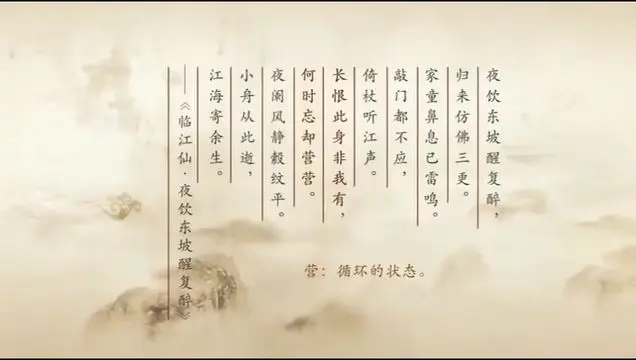 夜饮东坡醒复醉，
归来仿佛三更。
家童鼻息已雷鸣。
敲门都不应，
倚杖听江声。
长恨此身非我有，
何时忘却营营。
夜阑风静縠纹平。
小舟从此逝，
江海寄余生。
——《临江仙·夜饮东坡醒复醉》
营：循环的状态。